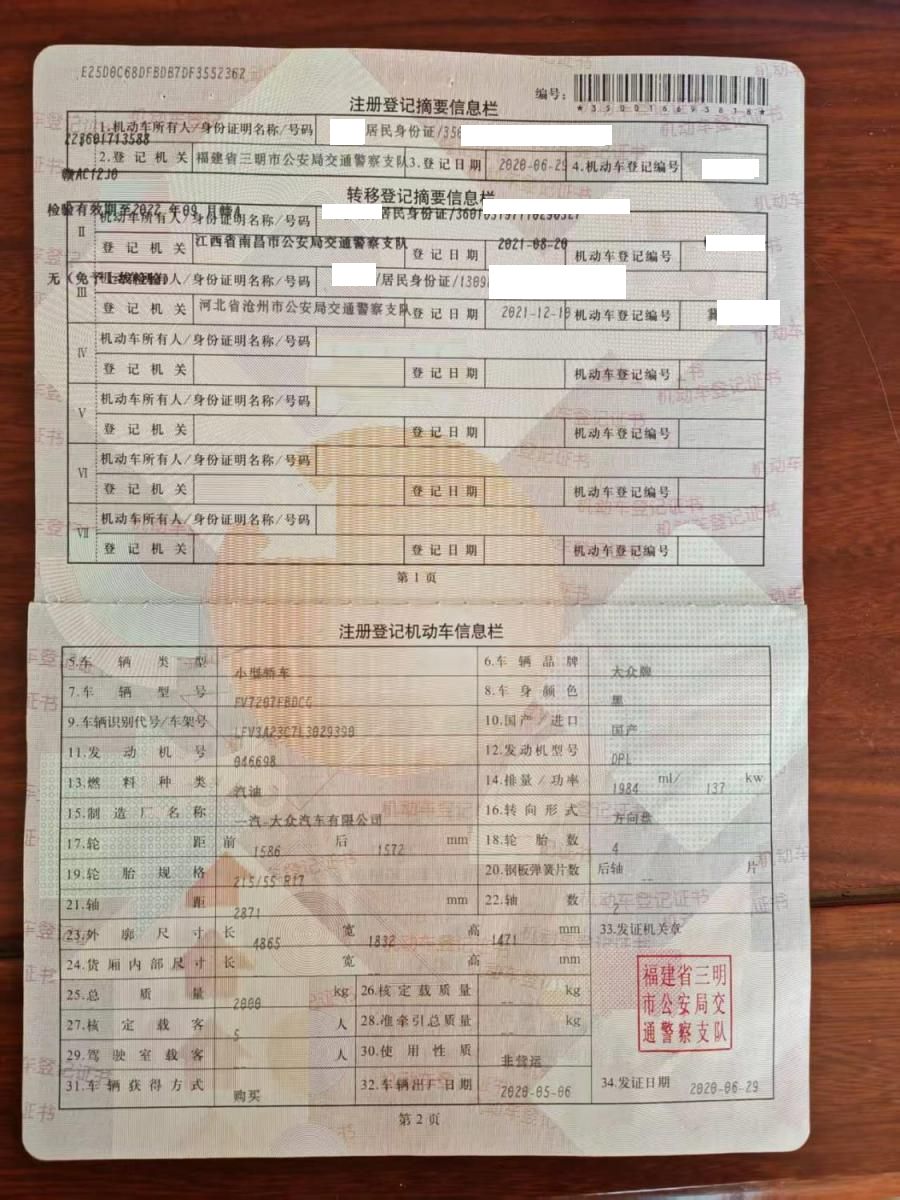 E25D0C68DFBDB7DF3552362
编号:
*350016693818*
注册登记摘要信息栏
1.机动车所有人/身份证明名称/号码 居民身份证/350
223601713588
2.登记机关 福建省三明市公安局交通警察支队 3.登记日期 2020-06-29 4.机动车登记编号
赣AC12J0
转移登记摘要信息栏
检验有效期至2022 年09 月赣A
Ⅱ 机动车所有人/身份证明名称/号码 居民身份证
登记机关 江西省南昌市公安局交通警察支队 登记日期 2021-08-20 机动车登记编号
无(免予上线检验)
Ⅲ 机动车所有人/身份证明名称/号码 /居民身份证/1309
登记机关 河北省沧州市公安局交通警察支队 登记日期 2021-12-10 机动车登记编号 冀
Ⅳ 机动车所有人/身份证明名称/号码
登记机关 登记日期 机动车登记编号
Ⅴ 机动车所有人/身份证明名称/号码
登记机关 登记日期 机动车登记编号
Ⅵ 机动车所有人/身份证明名称/号码
登记机关 登记日期 机动车登记编号
Ⅶ 机动车所有人/身份证明名称/号码
登记机关 登记日期 机动车登记编号
第1页
注册登记机动车信息栏
5.车辆类型 小型轿车 6.车辆品牌 大众牌
7.车辆型号 FV7207FBDCG 8.车身颜色 黑
9.车辆识别代号/车架号 LFV3A23C7L3029390 10.国产/进口 国产
11.发动机号 046698 12.发动机型号 DPL
13.燃料种类 汽油 14.排量/功率 1984 ml/ 137 kw
15.制造厂名称 一汽-大众汽车有限公司 16.转向形式 方向盘
17.轮距 前 1586 后 1572 mm 18.轮胎数 4
19.轮胎规格 215/55 R17 20.钢板弹簧片数 后轴 -- 片
21.轴距 2871 mm 22.轴数 2
23.外廓尺寸 长 4865 宽 1832 高 1471 mm 33.发证机关章
24.货厢内部尺寸 长 宽 高 mm
福建省三明
市公安局交
通警察支队
25.总质量 2000 kg 26.核定载质量 -- kg
27.核定载客 5 人 28.准牵引总质量 -- kg
29.驾驶室载客 -- 人 30.使用性质 非营运
31.车辆获得方式 购买 32.车辆出厂日期 2020-05-06 34.发证日期 2020-06-29
第2页